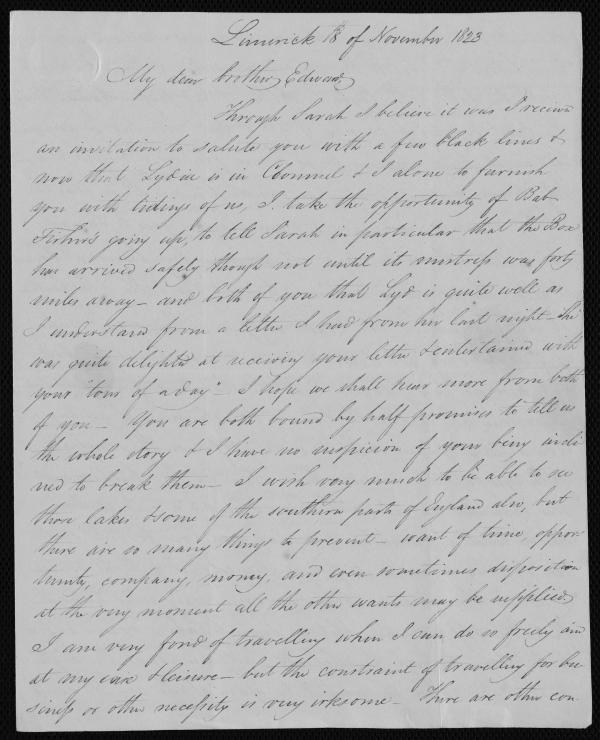 Limerick 18 of November 1823
My dear brother Edward
Through Sarah I believe it was I received
an invitation to salute you with a few black lines &
now that Lydia is in Clonmel & I alone to furnish
you with tidings of us, I take the opportunity of Bab
Fisher's going up, to tell Sarah in particular that the Box
has arrived safely though not until its mistress was forty
miles away - and both of you that Lyd is quite well as
I understand from a letter I had from her last night - She
was quite delighted at receiving your letter & entertained with
your "tour of a day" - I hope we shall hear more from both
of you - You are both bound by half promises to tell us
the whole story & I have no suspicion of your being incli
ned to break them - I wish very much to be able to see
those lakes & some of the southern parts of England also, but
there are so many things to prevent - want of time, oppor
tunity, company, money, and even sometimes disposition
at the very moment all the other wants may be supplied
I am very fond of travelling when I can do so freely and
at my ease & leisure - but the constraint of travelling for bu
siness or other necessity is very irksome - There are other con